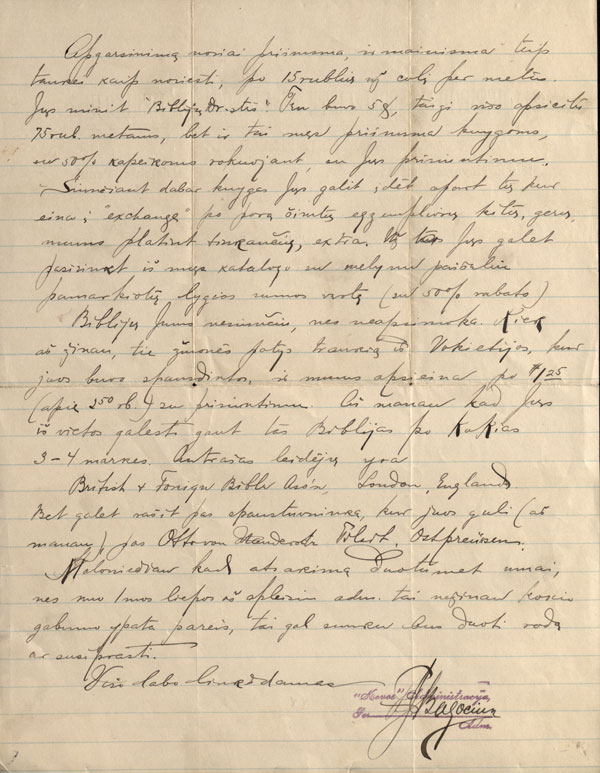 Apgarsinimą noriai priimsma, ir mainisma taip
tankei kaip noriesti, po 15 rublius už colį per metus.
Jus minit "Biblijų Dr-stės". Ten buvo 5 g, taigi viso apseitų
75 rub. metams, bet ir tai męs priimsma knygoms,
su 50% kapeikoms rokuojant, su Jųs prisiuntimu.
Siunčiant dabar knygas Jųs galit įdėt apart tų kur
eina į "exchangę" po porą šimtų egzempliorų kitų, gerų,
mums platint tinkančių, extra. Už tas Jųs galet
pasirinkt iš męs katalogo su melynu paišeliu
pamarkiotų lygios sumos vertę (su 50% rabato)
Biblijų Jums nesiunčiu, nes neapsimoka. Kiek
aš žinau, tie žmonės patys traukia iš Vokietijos, kur
juos buvo spaudintos, ir mums apseina po $1.25
(apie 2 50 rb.) su prisiuntimu. Aš manau kad Jųs
iš vietos galėsit gaut tas Biblijas po kokias
3-4 markes. Antrašas leidėjų yra
British & Foreign Bible Ass'n, London, England
Bet galet rašit pas spaustuvninką, kur juos guli (aš
manau), pas Otto von Mauderode Tilsit, Ostpreüssen.
Meloniedżiau kad atsakimą duotumet umai,
nes nuo 1mos liepos aš apleisiu adm. tai nežinau kokio
gabumo ypata pareis, tai gal sunku bus duoti rodą
ar susiprasti.
Viso labo linkėdamas
"Kova" Administracija
JBagocius
Adm.